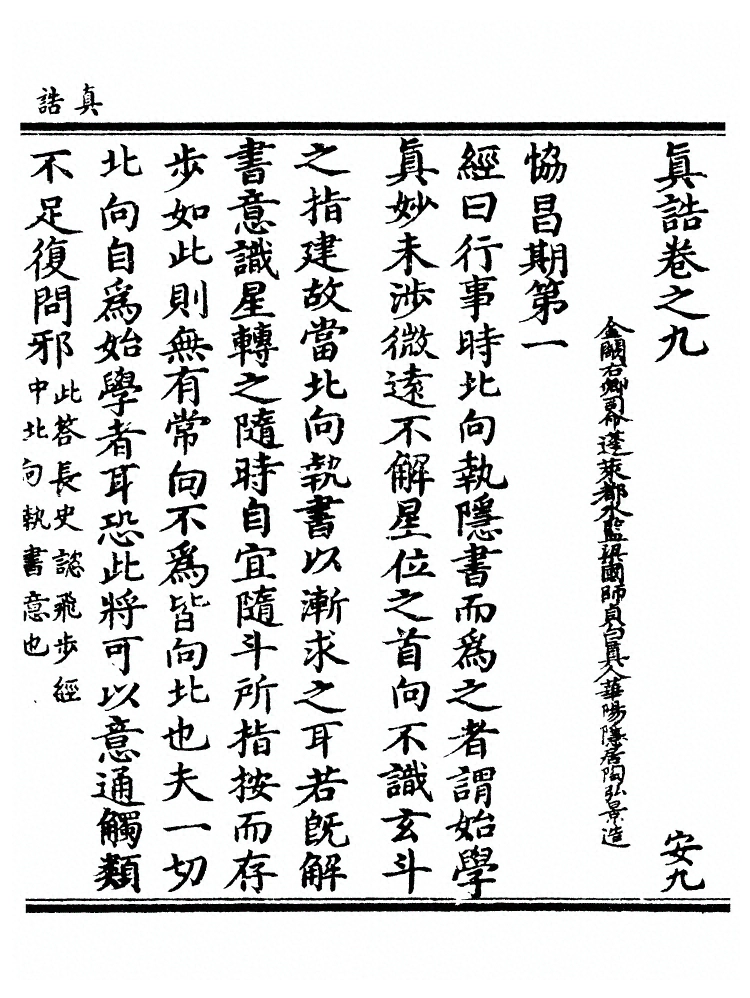 真誥
眞誥卷之九 安九
金闕右卿司命蓬萊都水監梁國師貞白真人華陽隱居陶弘景造
協昌期第一
經曰行事時北向執隱書而爲之者謂始學
眞妙未涉微遠不解星位之首向不識玄斗
之指建故當北向執書以漸求之耳若旣解
書意識星轉之隨時自宜隨斗所指按而存
步如此則無有常向不爲皆向北也夫一切
北向自爲始學者耳恐此將可以意通觸類
不足復問邪此答長史諮飛步經
中北向執書意也